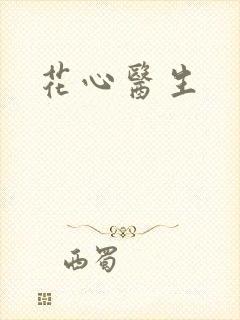 花心醫生
西蜀